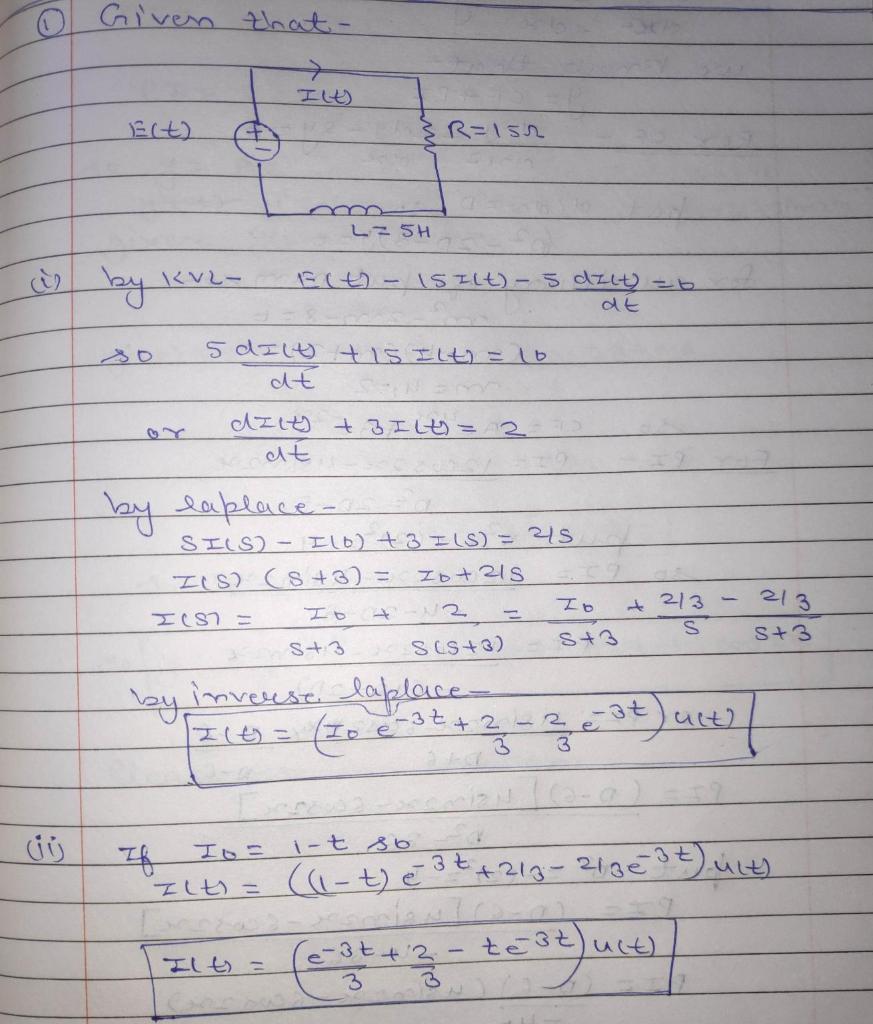 ① Given that -
I(t)
E(t)
R=15Ω
L=5H
(i) by KVL - E(t) - 15I(t) - 5 dI(t)/dt = 0
so 5 dI(t)/dt + 15 I(t) = 10
or dI(t)/dt + 3I(t) = 2
by laplace -
SI(S) - I(0) + 3I(S) = 2/S
I(S) (S+3) = I0 + 2/S
I(S) = I0/(S+3) + 2/(S(S+3)) = I0/(S+3) + 2/3/S - 2/3/(S+3)
by inverse laplace -
I(t) = (I0 e^-3t + 2/3 - 2/3 e^-3t) u(t)
(ii) If I0 = 1-t so
I(t) = ((1-t) e^-3t + 2/3 - 2/3 e^-3t) u(t)
I(t) = (e^-3t/3 + 2/3 - te^-3t) u(t)